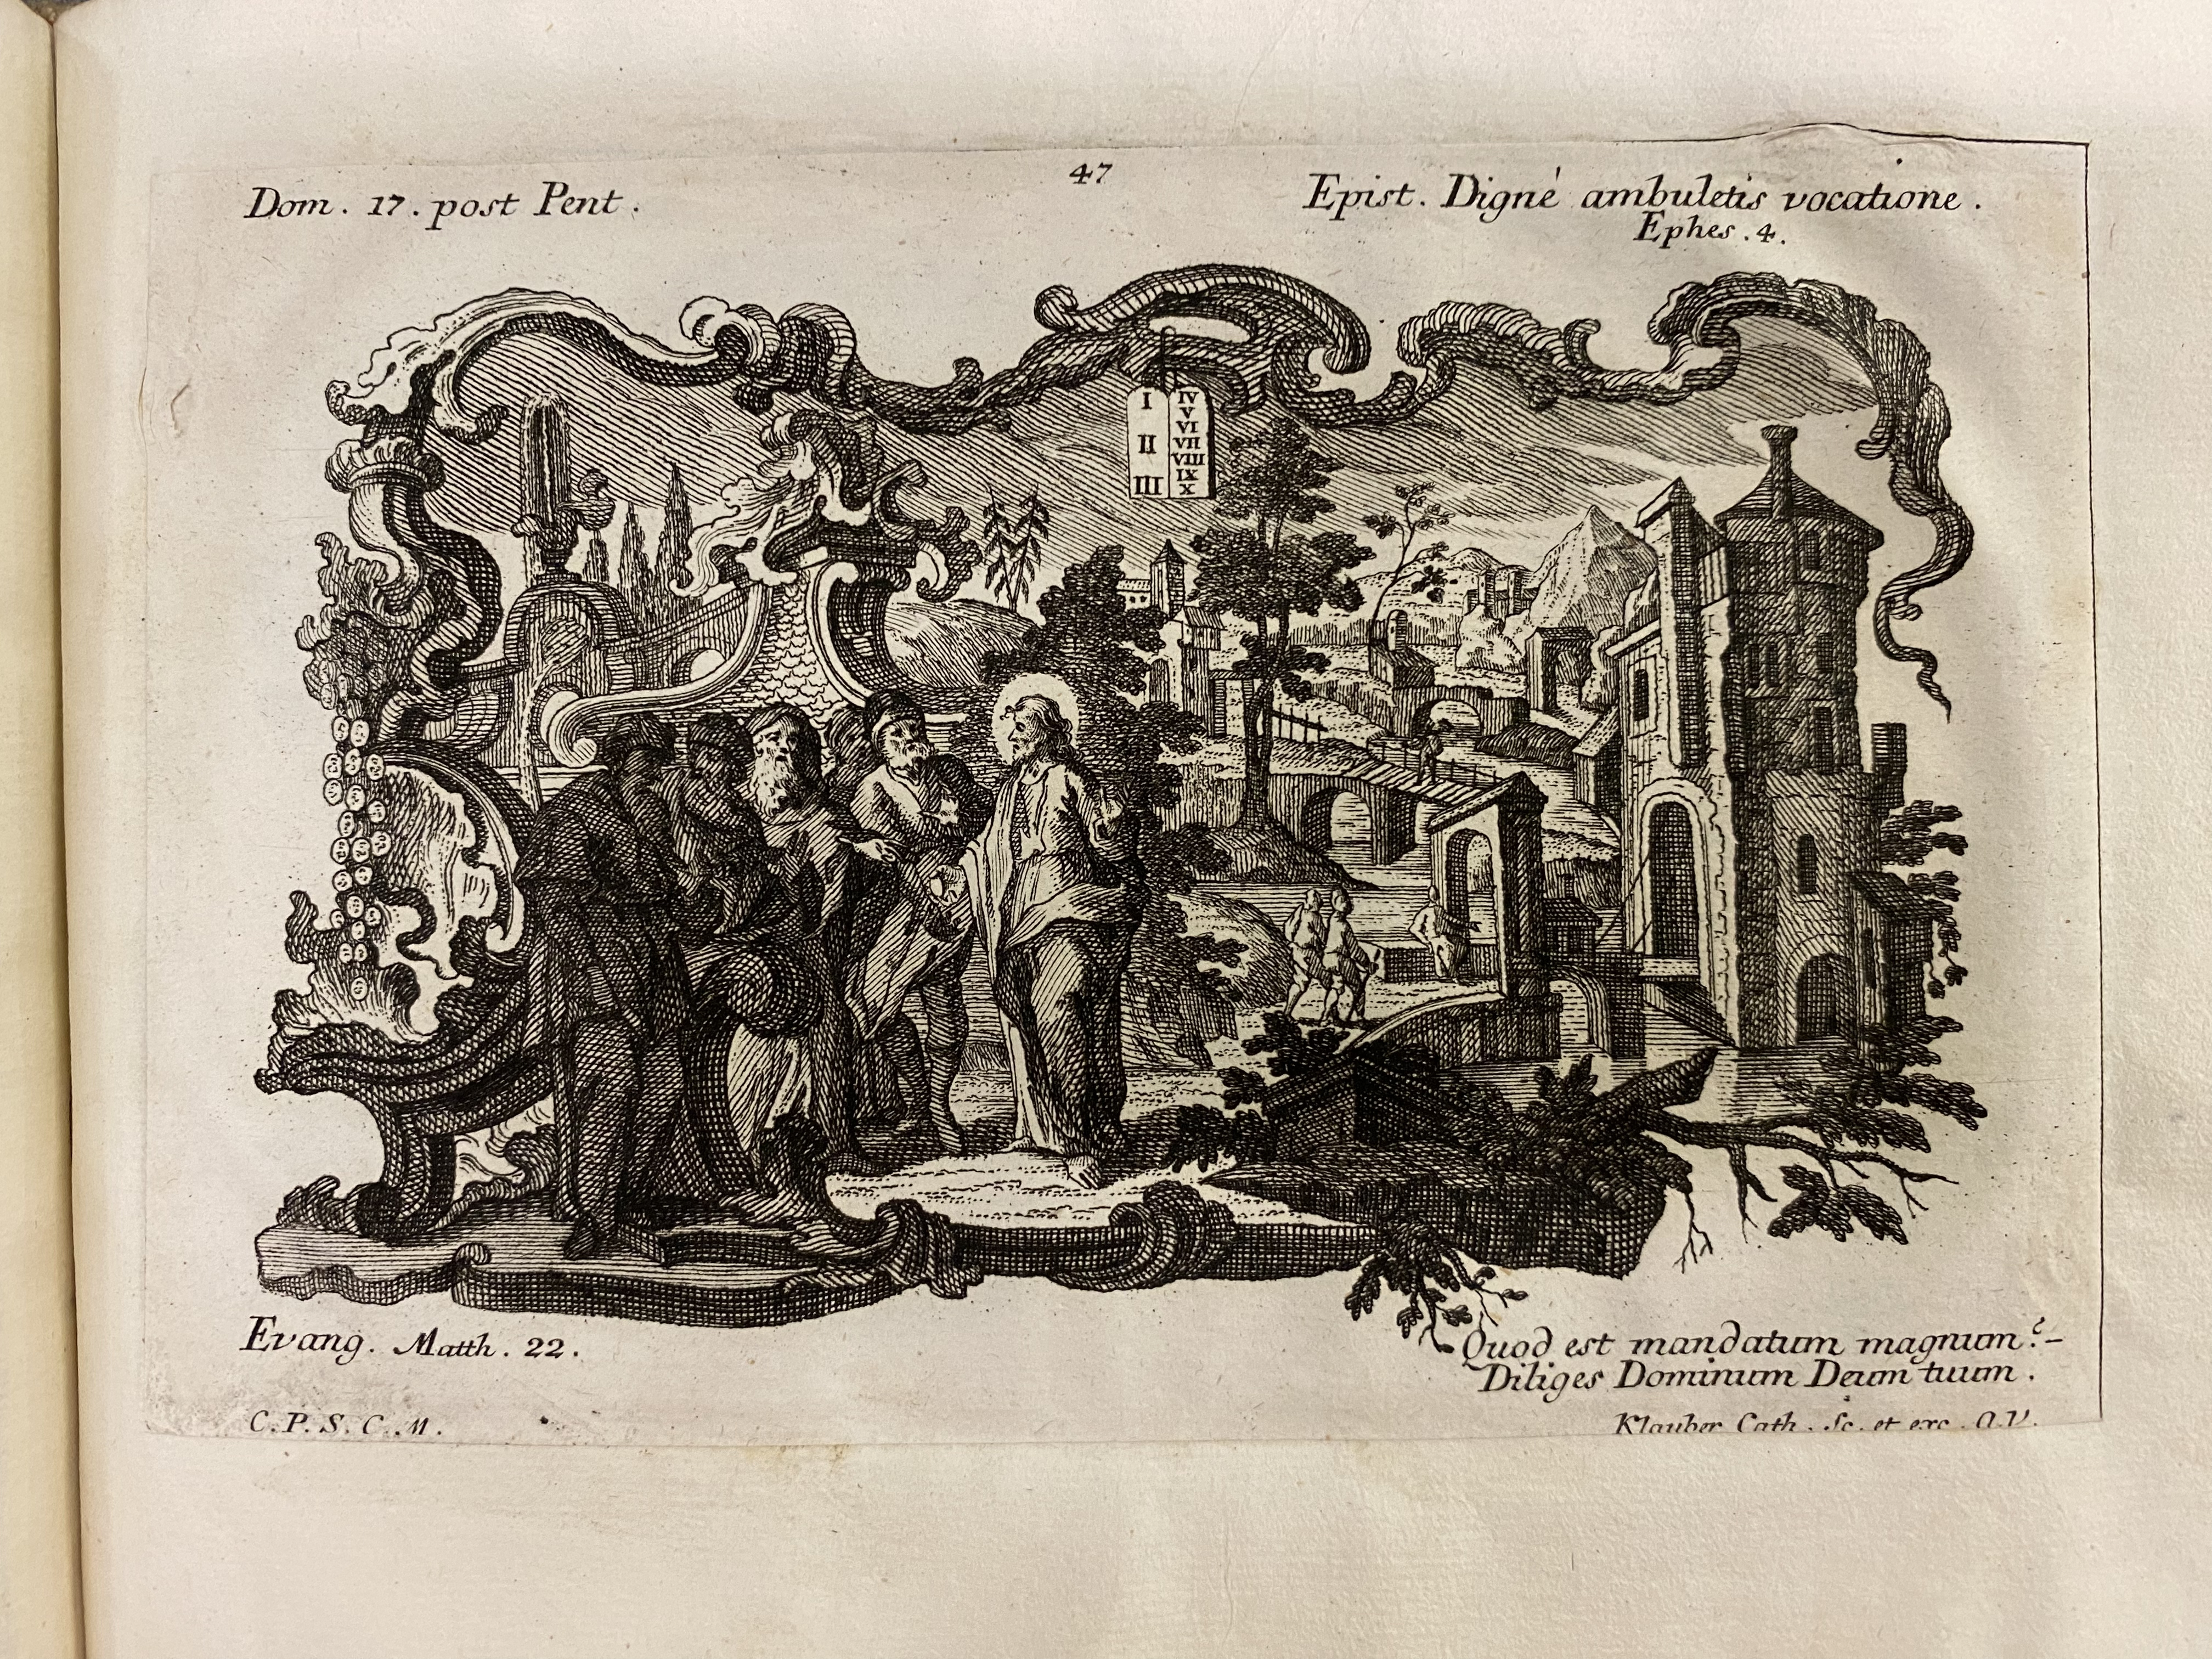 47
Dom. 17. post Pent.
Epist. Dignè ambuletis vocatione.
Ephes. 4.
I
II
III
IV
V
VI
VII
VIII
IX
X
Evang. Matth. 22.
Quod est mandatum magnum?-
Diliges Dominum Deum tuum.
C. P. S. C. M.
Klauber Cath. Sc. et exc. A.V.